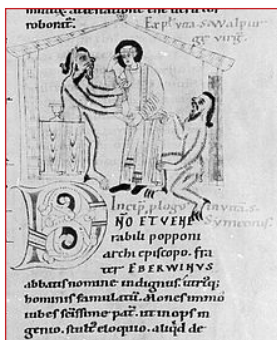 roborat̄.
Expl' vita S. Walpur
gę virg̃.
Incip̃ plog' in vita s. Symeonis.
DÑO ET VENE
rabili popponi
archi episcopo. fra
ter EBERWINVS
abbatis nomine indignus utriq;
hominis famulatū. Mones immo
iubes scissime pat̃. ut inops in
genio. stulť eloquio. aliqd de